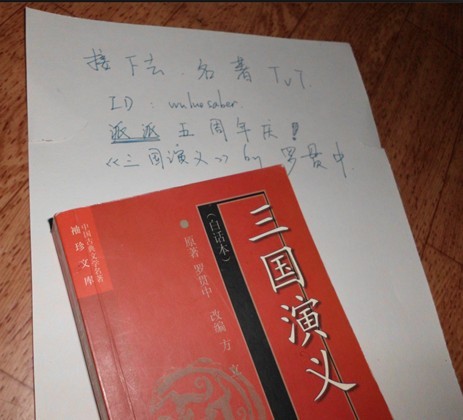 接下去.名著TvT.
ID: wuhusaber.
派派五周年庆!
《三国演义》by 罗贯中.
中国古典文学名著
袖珍文库
(白话本)
原著 罗贯中 改编 方 立
三国演义